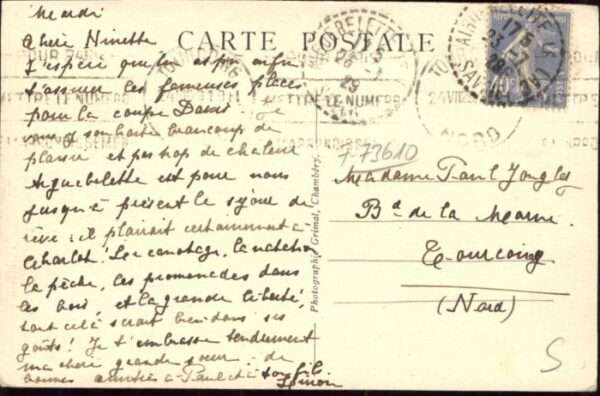 Mardi
Chère Ninette
CARTE POSTALE
J'espère que tu as pu enfin
t'assurer les fameuses places
pour la coupe Davis. Je
vous y souhaite beaucoup de
plaisir et pas trop de chaleur
Aiguebelette est pour nous
jusqu'à présent le séjour de
rêve ; il plairait certainement à
Charlot! Le canotage, la natation
la pêche, les promenades dans
les bois, et la grande liberté,
tout cela serait bien dans ses
goûts! Je t'embrasse tendrement
ma chère grande soeur, de
bonnes amitiés à Paul et à ton fils.
Photographie Grimal, Chambéry.
773610
Madame Paul
Bd de la Marne
Tourcoing
(Nord)
METTRE LE NUMERO
LE NUMERO
NORD
17
23-7
29
S